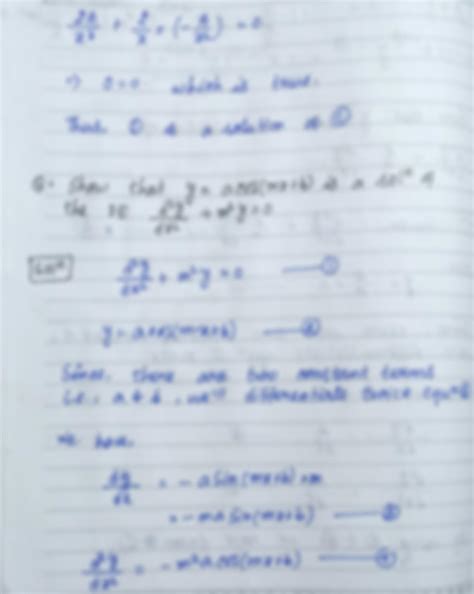 2a/x³ + 2/x × (-a/x²) = 0
⇒ 0=0 which is true.
Thus ① is a solution of ①
Q. Show that y = a cos(mx+b) is a solⁿ of
the DE d²y/dx² + m²y=0
Solⁿ d²y/dx² + m²y = 0 —— ①
y = a cos(mx+b) —— ②
Since, there are two constant terms
i.e., a & b, we'll differentiate twice eqⁿ
We have,
dy/dx = - a sin(mx+b) × m
= -ma sin(mx+b) —— ③
d²y/dx² = -m²a cos(mx+b) —— ④